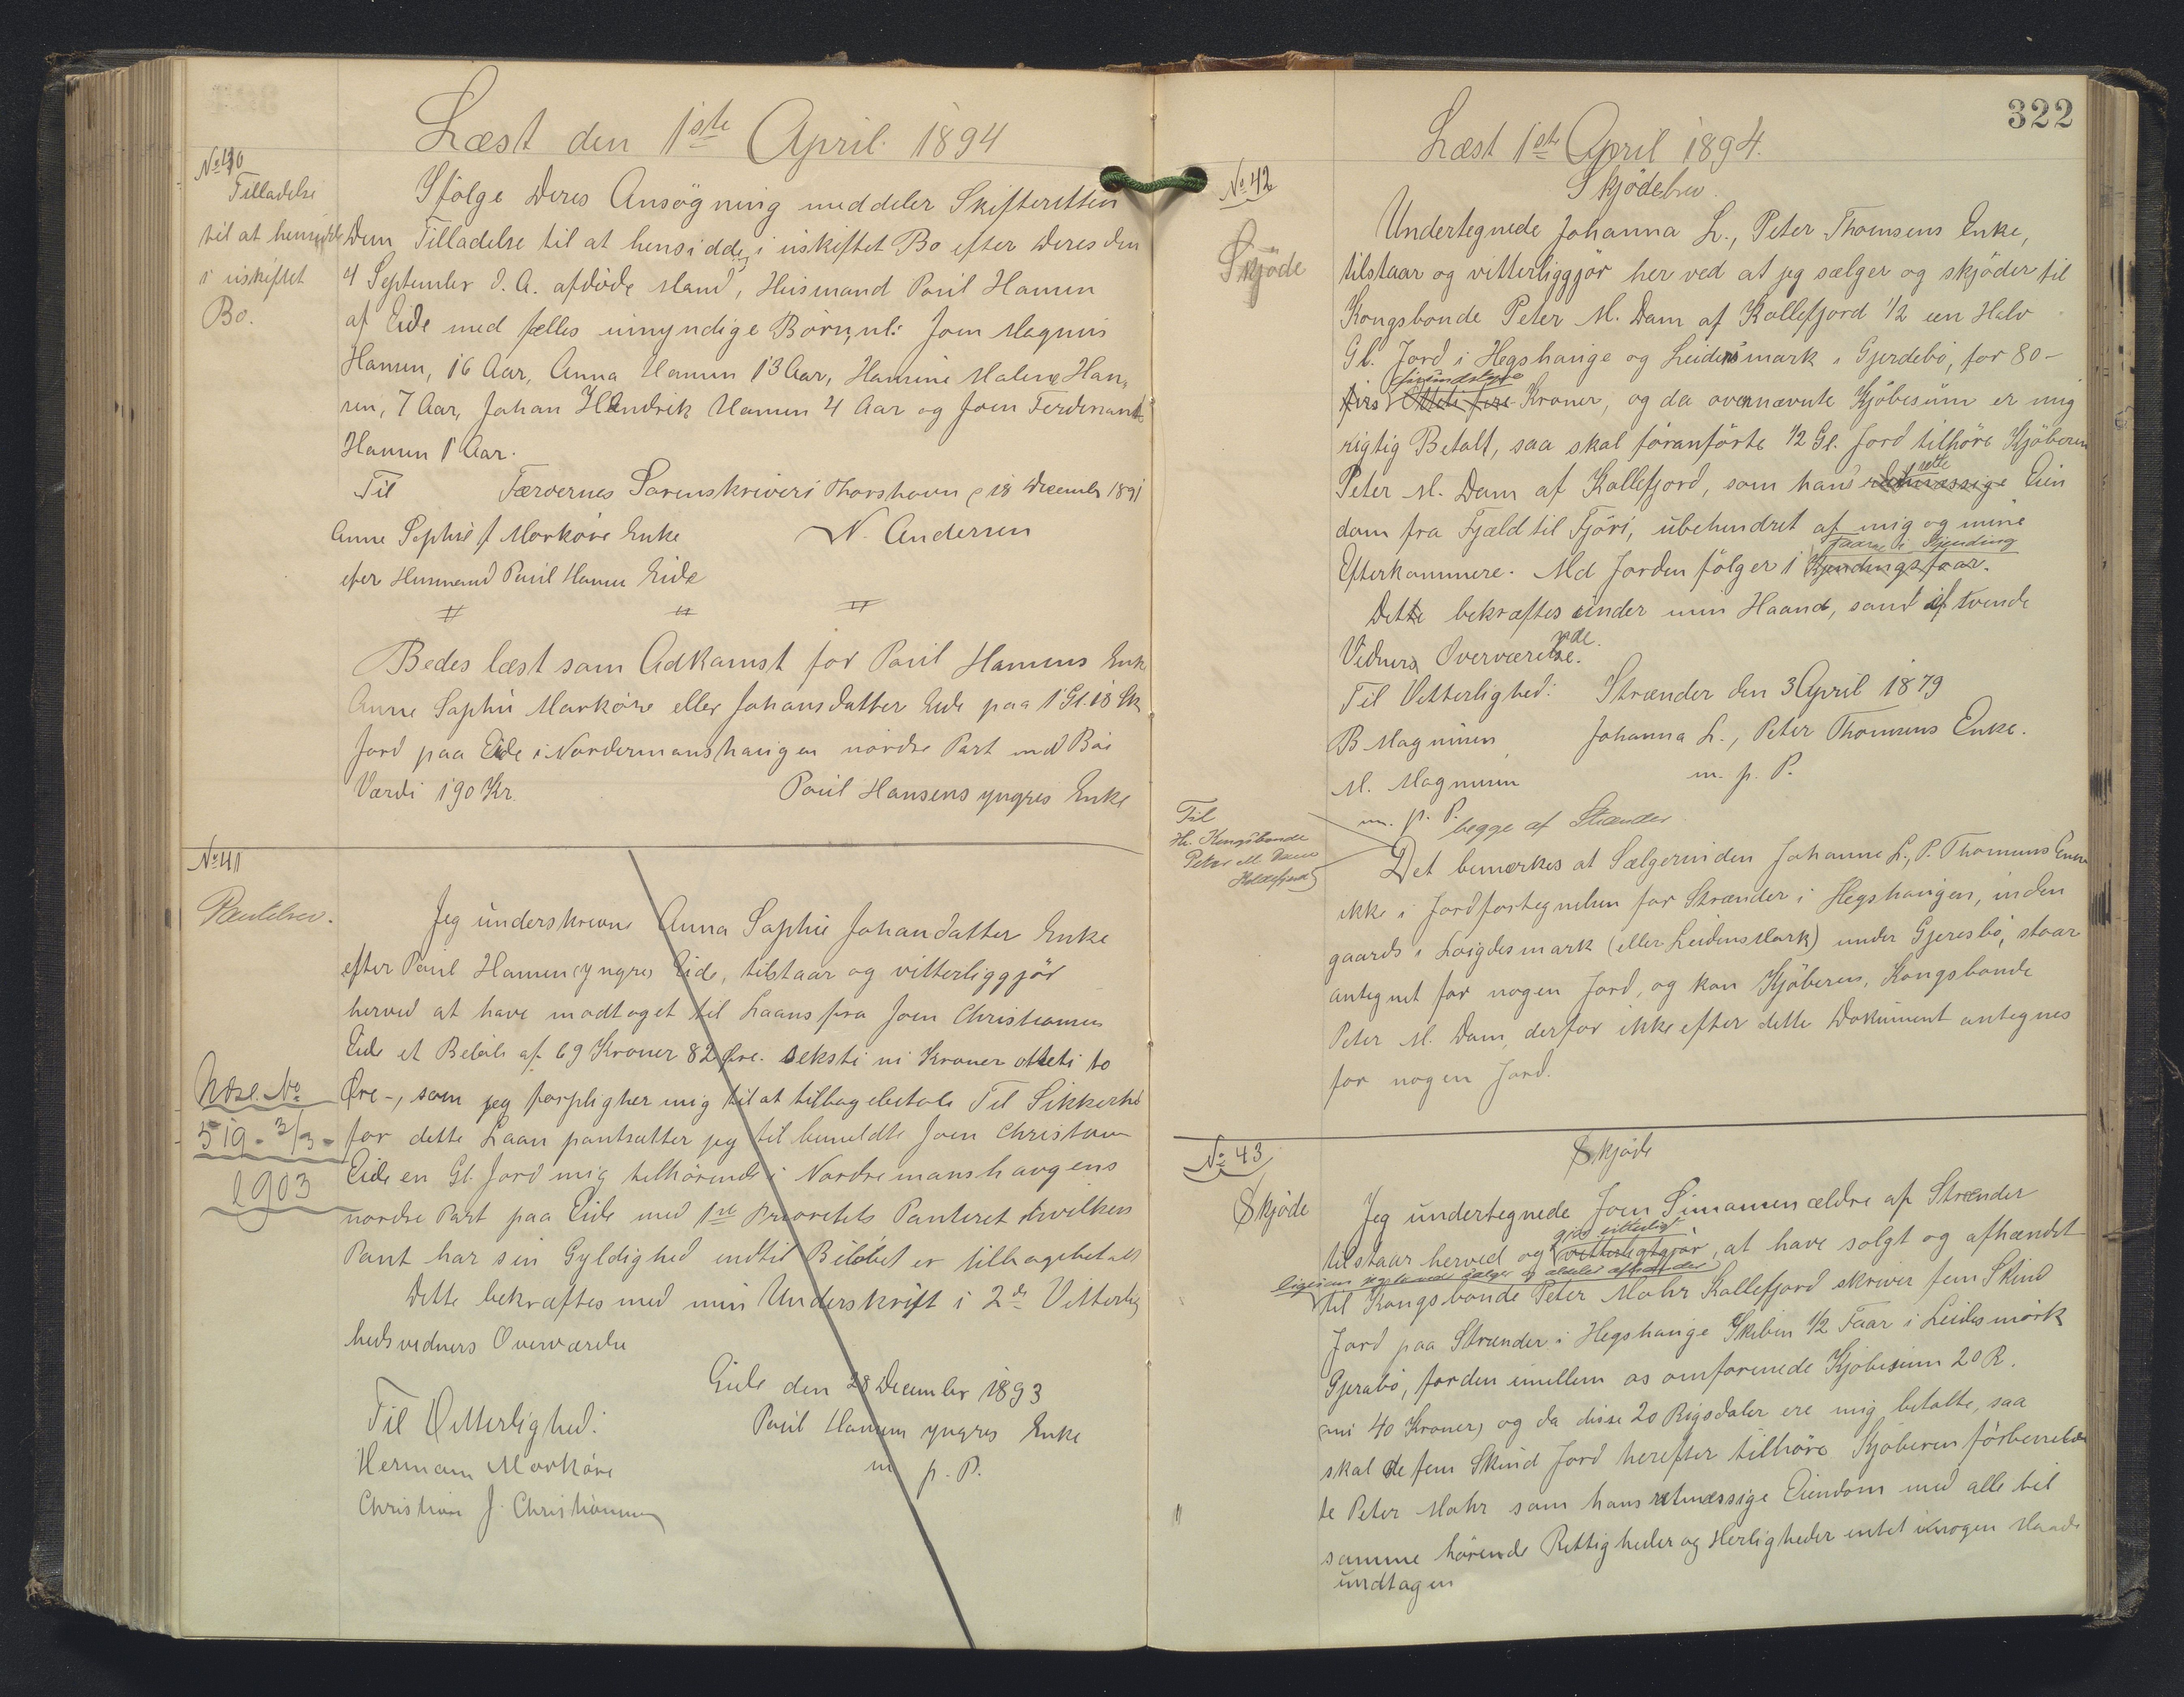 Læst den 1ste April 1894
No 40
Tilladelse
til at hensidde
i uskiftet
Bo.
Ifölge Deres Ansøgning meddeler Skifteretten
Dem Tilladelse til at hensidde i uskiftet Bo efter Deres den
4 September d. A. afdöde Mand, Husmand Poul Hansen
af Eide med fælles umyndige Börn, nl: Joen Magnus
Hansen, 16 Aar, Anna Hansen 13 Aar, Hansine Malene Han-
sen, 7 Aar, Johan Hendrik Hansen 4 Aar og Joen Ferdinand
Hansen 1 Aar.
Til Færøernes Sorenskriveri Thorshavn 18 December 1891
Anne Sophie f Morköre Enke N. Andersen
efter Husmand Poul Hansen Eide
Bedes læst som Adkomst for Poul Hansens Enke
Anne Sophie Morköre eller Johansdatter Eide paa 1 Gl. 18 Sk
Jord paa Eide i Nordermanshaugen nordre Part med Böe
Værdi 190 Kr. Poul Hansens yngres Enke
No 41
Pantebrev.
Jeg underskrevne Anna Sophie Johandatter Enke
efter Poul Hansen yngres Eide, tilstaar og vitterliggjör
herved at have modtaget til Laans fra Joen Christiansen
Eide et Belöb af 69 Kroner 82 Øre. seksti ni Kroner otteti to
Øre -, som jeg forpligter mig til at tilbagebetale Til Sikkerhe
for dette Laan pantsætter jeg til bemeldte Joen Christian
Eide en Gl. Jord mig tilhörende i Nordremanshaugens
nordre Part paa Eide med 1ste Prioritets Panteret hvilken
Pant har sin Gyldighed indtil Belöbet er tilbagebetalt
Dette bekræftes med min Underskrift i 2de Vitterlig
hedsvidners Overværelse
519 - 3/3 -
1903
Eide den 28 December 1893
Til Vitterlighed: Poul Hansen yngres Enke
Herman Morköre m p. P.
Christian J. Christiansen
322
Læst 1ste April 1894.
No 42
Skjöde
Skjödebrev.
Undertegnede Johanna L., Peter Thomsens Enke,
tilstaar og vitterliggjör her ved at jeg sælger og skjöder til
Kongsbonde Peter M. Dam af Kollefjord 1/2 een Halv
Gl. Jord i Hegshauge og Leidensmark i Gjerdebö, for 80 -
firsindstyve
firs Otteti fire Kroner, og da ovennævnte Kjöbesum er mig
rigtig Betalt, saa skal föranförte 1/2 Gl. Jord tilhöre Kjöberen
rette
Peter M. Dam af Kollefjord, som hans retmæssige Eien
dom fra Fjæld til Fjöri, ubehindret af mig og mine
Faar i Kjending
Efterkommere. Med Jorden fölger 1 Kjendingsfaar.
Dette bekræftes under min Haand, samt i tvende
Vidners Overværelse.
Til Vitterlighed: Strænder den 3 April 1879
B Magnusen Johanna L., Peter Thomsens Enke.
M. Magnusen m. p. P.
m. p. P. begge af Strænder
Til
Hr. Kongsbonde
Peter M. Dam
Kollefjord
Det bemærkes at Sælgerinden Johanne L., P. Thomsens Enke
ikke i Jordfortegnelsen for Strænder i Hegshaugen, inden
gaards i Loigdesmark (eller Leidensmark) under Gjeresbö, staar
antegnet for nogen Jord, og kan Kjöberen, Kongsbonde
Peter M. Dam, derfor ikke efter dette Dokument antegnes
for nogen Jord.
No 43
Skjöde
Skjöde
Jeg undertegnede Joen Simonsen ældre af Strænder
gjör vitterligt
tilstaar herved og vitterligtgjör, at have solgt og afhændet
ligesom jeg herved sælger og aldeles afhænder
til Kongsbonde Peter Mohr Kollefjord skriver fem Skind
Jord paa Strænder i Hegshauge Skibin 1/2 Faar i Leidesmörk
Gjerabö, for den imellem os omforenede Kjöbesum 20 R.
(nu 40 Kroner) og da disse 20 Rigsdaler ere mig betalte, saa
skal de fem Skind Jord herefter tilhöre Kjöberen förbemeld
te Peter Mohr som hans retmæssige Eiendom med alle til
samme hörende Rettigheder og Herligheder intet i nogen Maade
undtagen